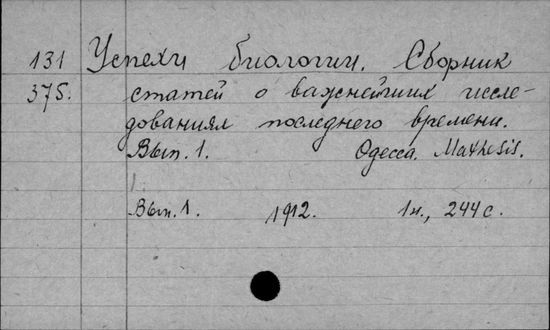 131 Успехи биологии. Сборник
375. статей о важнейших иссле-
дованиях последнего времени.
Вып. 1. Одесса. Mathesis.
1.
Вып. 1. 1912. 1н., 244 с.